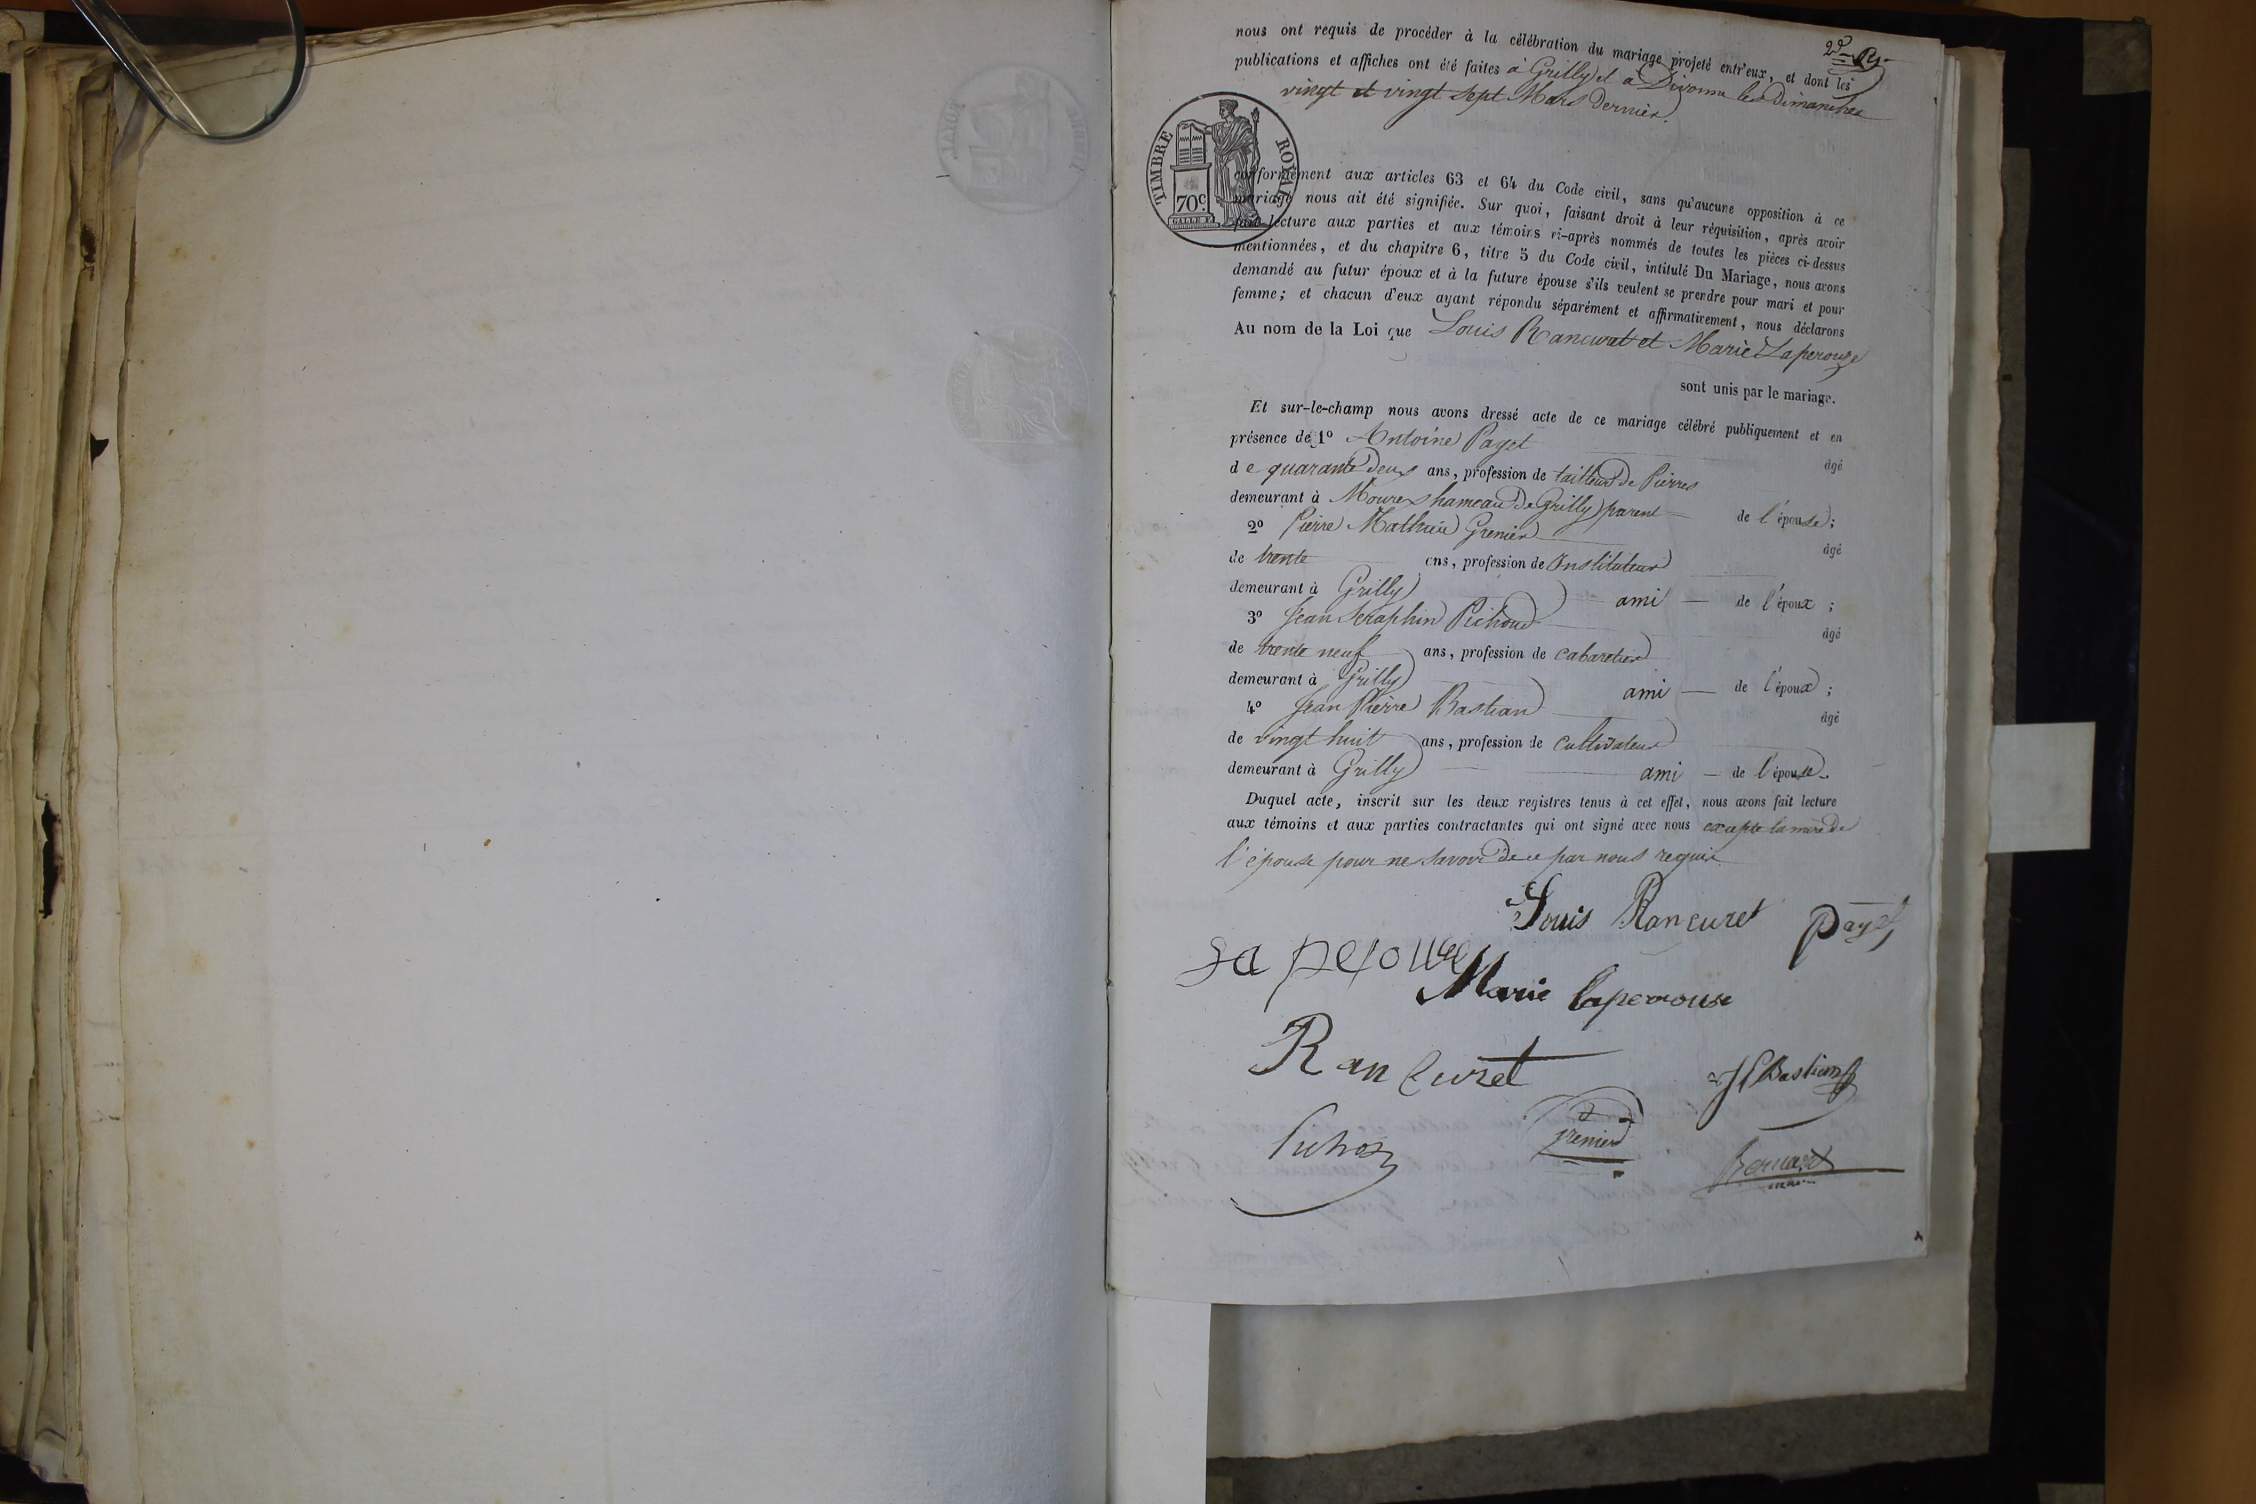 2e
nous ont requis de procéder à la célébration du mariage projeté entr'eux, et dont les
publications et affiches ont été faites à Grilly et à Divonne les Dimanches
vingt et vingt sept Mars dernier.
TIMBRE ROYAL
70c.
conformément aux articles 63 et 64 du Code civil, sans qu'aucune opposition à ce
mariage nous ait été signifiée. Sur quoi, faisant droit à leur réquisition, après avoir
fait lecture aux parties et aux témoins ci-après nommés de toutes les pièces ci-dessus
mentionnées, et du chapitre 6, titre 5 du Code civil, intitulé Du Mariage, nous avons
demandé au futur époux et à la future épouse s'ils veulent se prendre pour mari et pour
femme; et chacun d'eux ayant répondu séparément et affirmativement, nous déclarons
Au nom de la Loi que Louis Rancuret et Marie Laperouse
sont unis par le mariage.
Et sur-le-champ nous avons dressé acte de ce mariage célébré publiquement et en
présence de 1º Antoine Payet âgé
de quarante deux ans, profession de tailleur de Pierres
demeurant à Mourex hameau de Grilly parent de l'épouse;
2º Pierre Mathieu Grenier âgé
de trente ans, profession de Instituteur
demeurant à Grilly ami de l'époux;
3º Jean Seraphin Pichoud âgé
de trente neuf ans, profession de cabaretier
demeurant à Grilly ami de l'époux;
4º Jean Pierre Bastian âgé
de vingt huit ans, profession de cultivateur
demeurant à Grilly ami de l'épouse.
Duquel acte, inscrit sur les deux registres tenus à cet effet, nous avons fait lecture
aux témoins et aux parties contractantes qui ont signé avec nous excepté la mère de
l'épouse pour ne savoir de ce par nous requise
Louis Rancuret Payet
La perouse
Marie laperouse
Rancuret
JP Bastian
Pichoz Grenier
Bernard